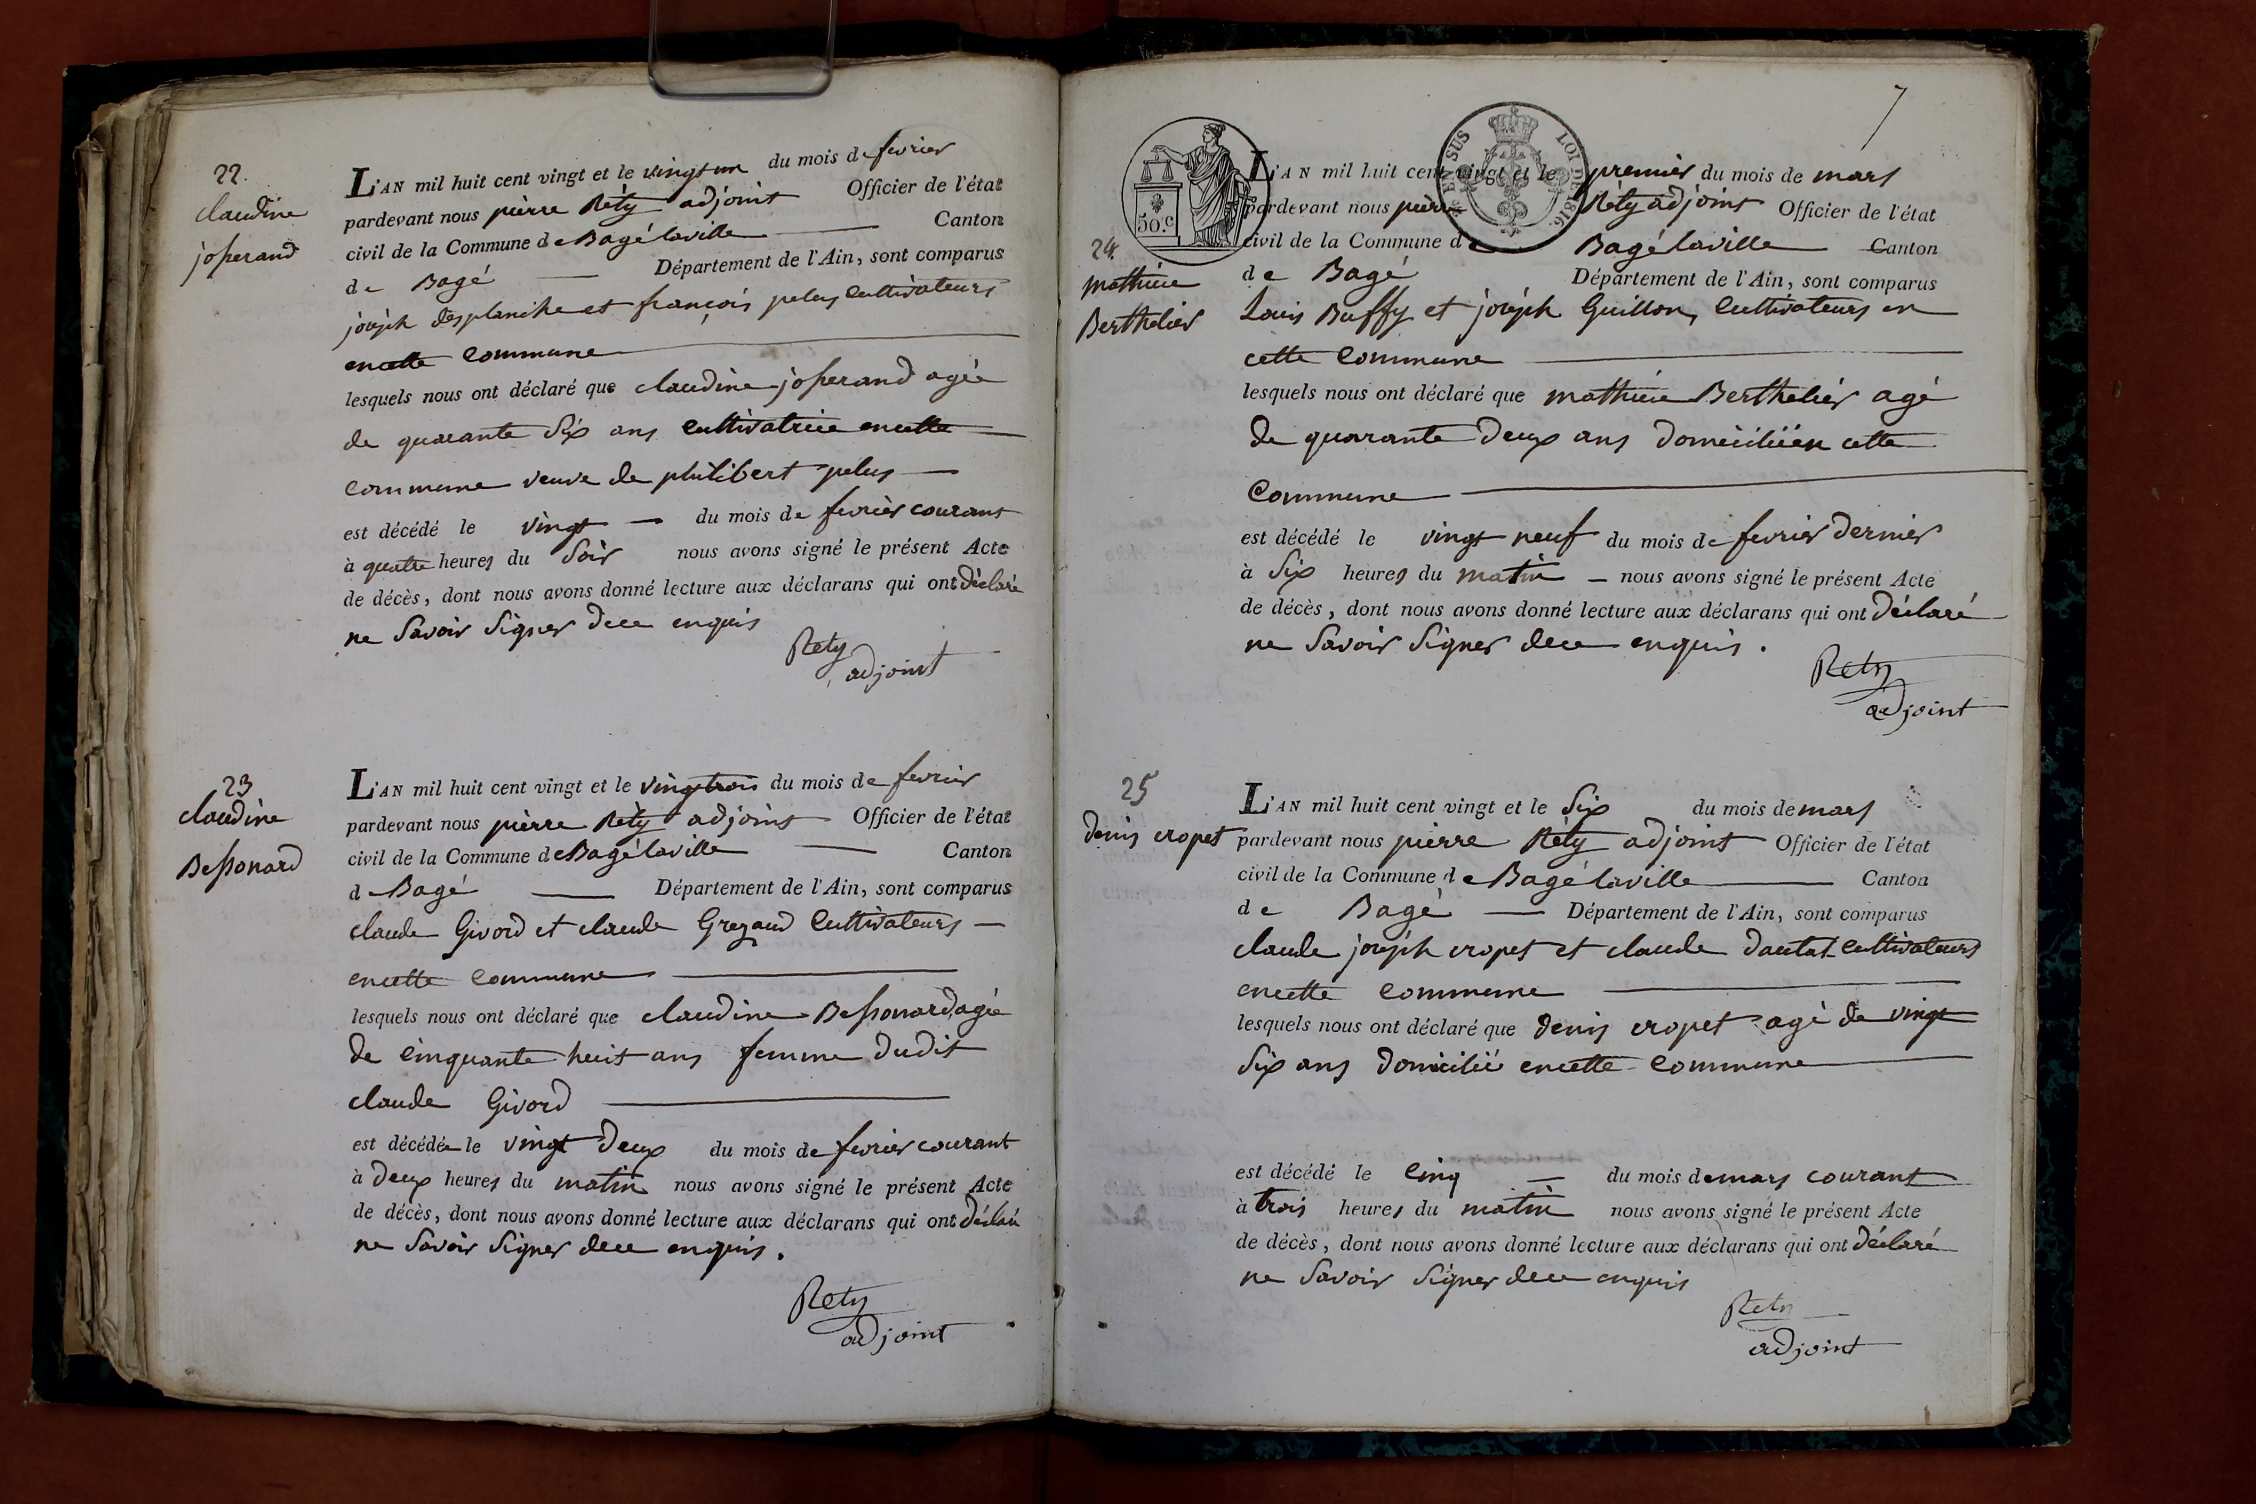 22.
claudine
josserand
L'AN mil huit cent vingt et le vingt un du mois de fevrier
pardevant nous pierre Réty adjoint Officier de l'état
civil de la Commune de Bagé laville Canton
de Bagé Département de l'Ain, sont comparus
joseph desplanche et françois pelus cultivateurs
encette commune
lesquels nous ont déclaré que claudine josserand agée
de quarante six ans cultivatrice encette
commune veuve de philibert pelus
est décédé le vingt du mois de fevrier courant
à quatre heures du soir nous avons signé le présent Acte
de décès, dont nous avons donné lecture aux déclarans qui ont déclaré
ne savoir signer dece enquis
Rety
adjoint
23
claudine
Bessonard
L'AN mil huit cent vingt et le vingt trois du mois de fevrier
pardevant nous pierre Réty adjoint Officier de l'état
civil de la Commune de Bagé laville Canton
de Bagé Département de l'Ain, sont comparus
claude Givord et claude Gregaud cultivateurs
encette commune
lesquels nous ont déclaré que claudine Bessonard agée
de cinquante huit ans femme dudit
claude Givord
est décédée le vingt deux du mois de fevrier courant
à deux heures du matin nous avons signé le présent Acte
de décès, dont nous avons donné lecture aux déclarans qui ont déclaré
ne savoir signer dece enquis.
Rety
adjoint
7
50.c
EN SUS LOI DE 1816.
24.
mathieu
Berthelier
L'AN mil huit cent vingt et le premier du mois de mars
pardevant nous pierre Réty adjoint Officier de l'état
civil de la Commune de Bagé laville Canton
de Bagé Département de l'Ain, sont comparus
Louis Buffy et joseph Guillon, cultivateurs en
cette commune
lesquels nous ont déclaré que mathieu Berthelier agé
de quarante deux ans domicilié en cette
commune
est décédé le vingt neuf du mois de fevrier dernier
à six heures du matin nous avons signé le présent Acte
de décès, dont nous avons donné lecture aux déclarans qui ont déclaré
ne savoir signer dece enquis.
Rety
adjoint
25
denis cropet
L'AN mil huit cent vingt et le six du mois de mars
pardevant nous pierre Réty adjoint Officier de l'état
civil de la Commune de Bagé laville Canton
de Bagé Département de l'Ain, sont comparus
claude joseph cropet et claude dautat cultivateurs
encette commune
lesquels nous ont déclaré que denis cropet agé de vingt
six ans domicilié encette commune
est décédé le cinq du mois de mars courant
à trois heures du matin nous avons signé le présent Acte
de décès, dont nous avons donné lecture aux déclarans qui ont déclaré
ne savoir signer dece enquis
Rety
adjoint